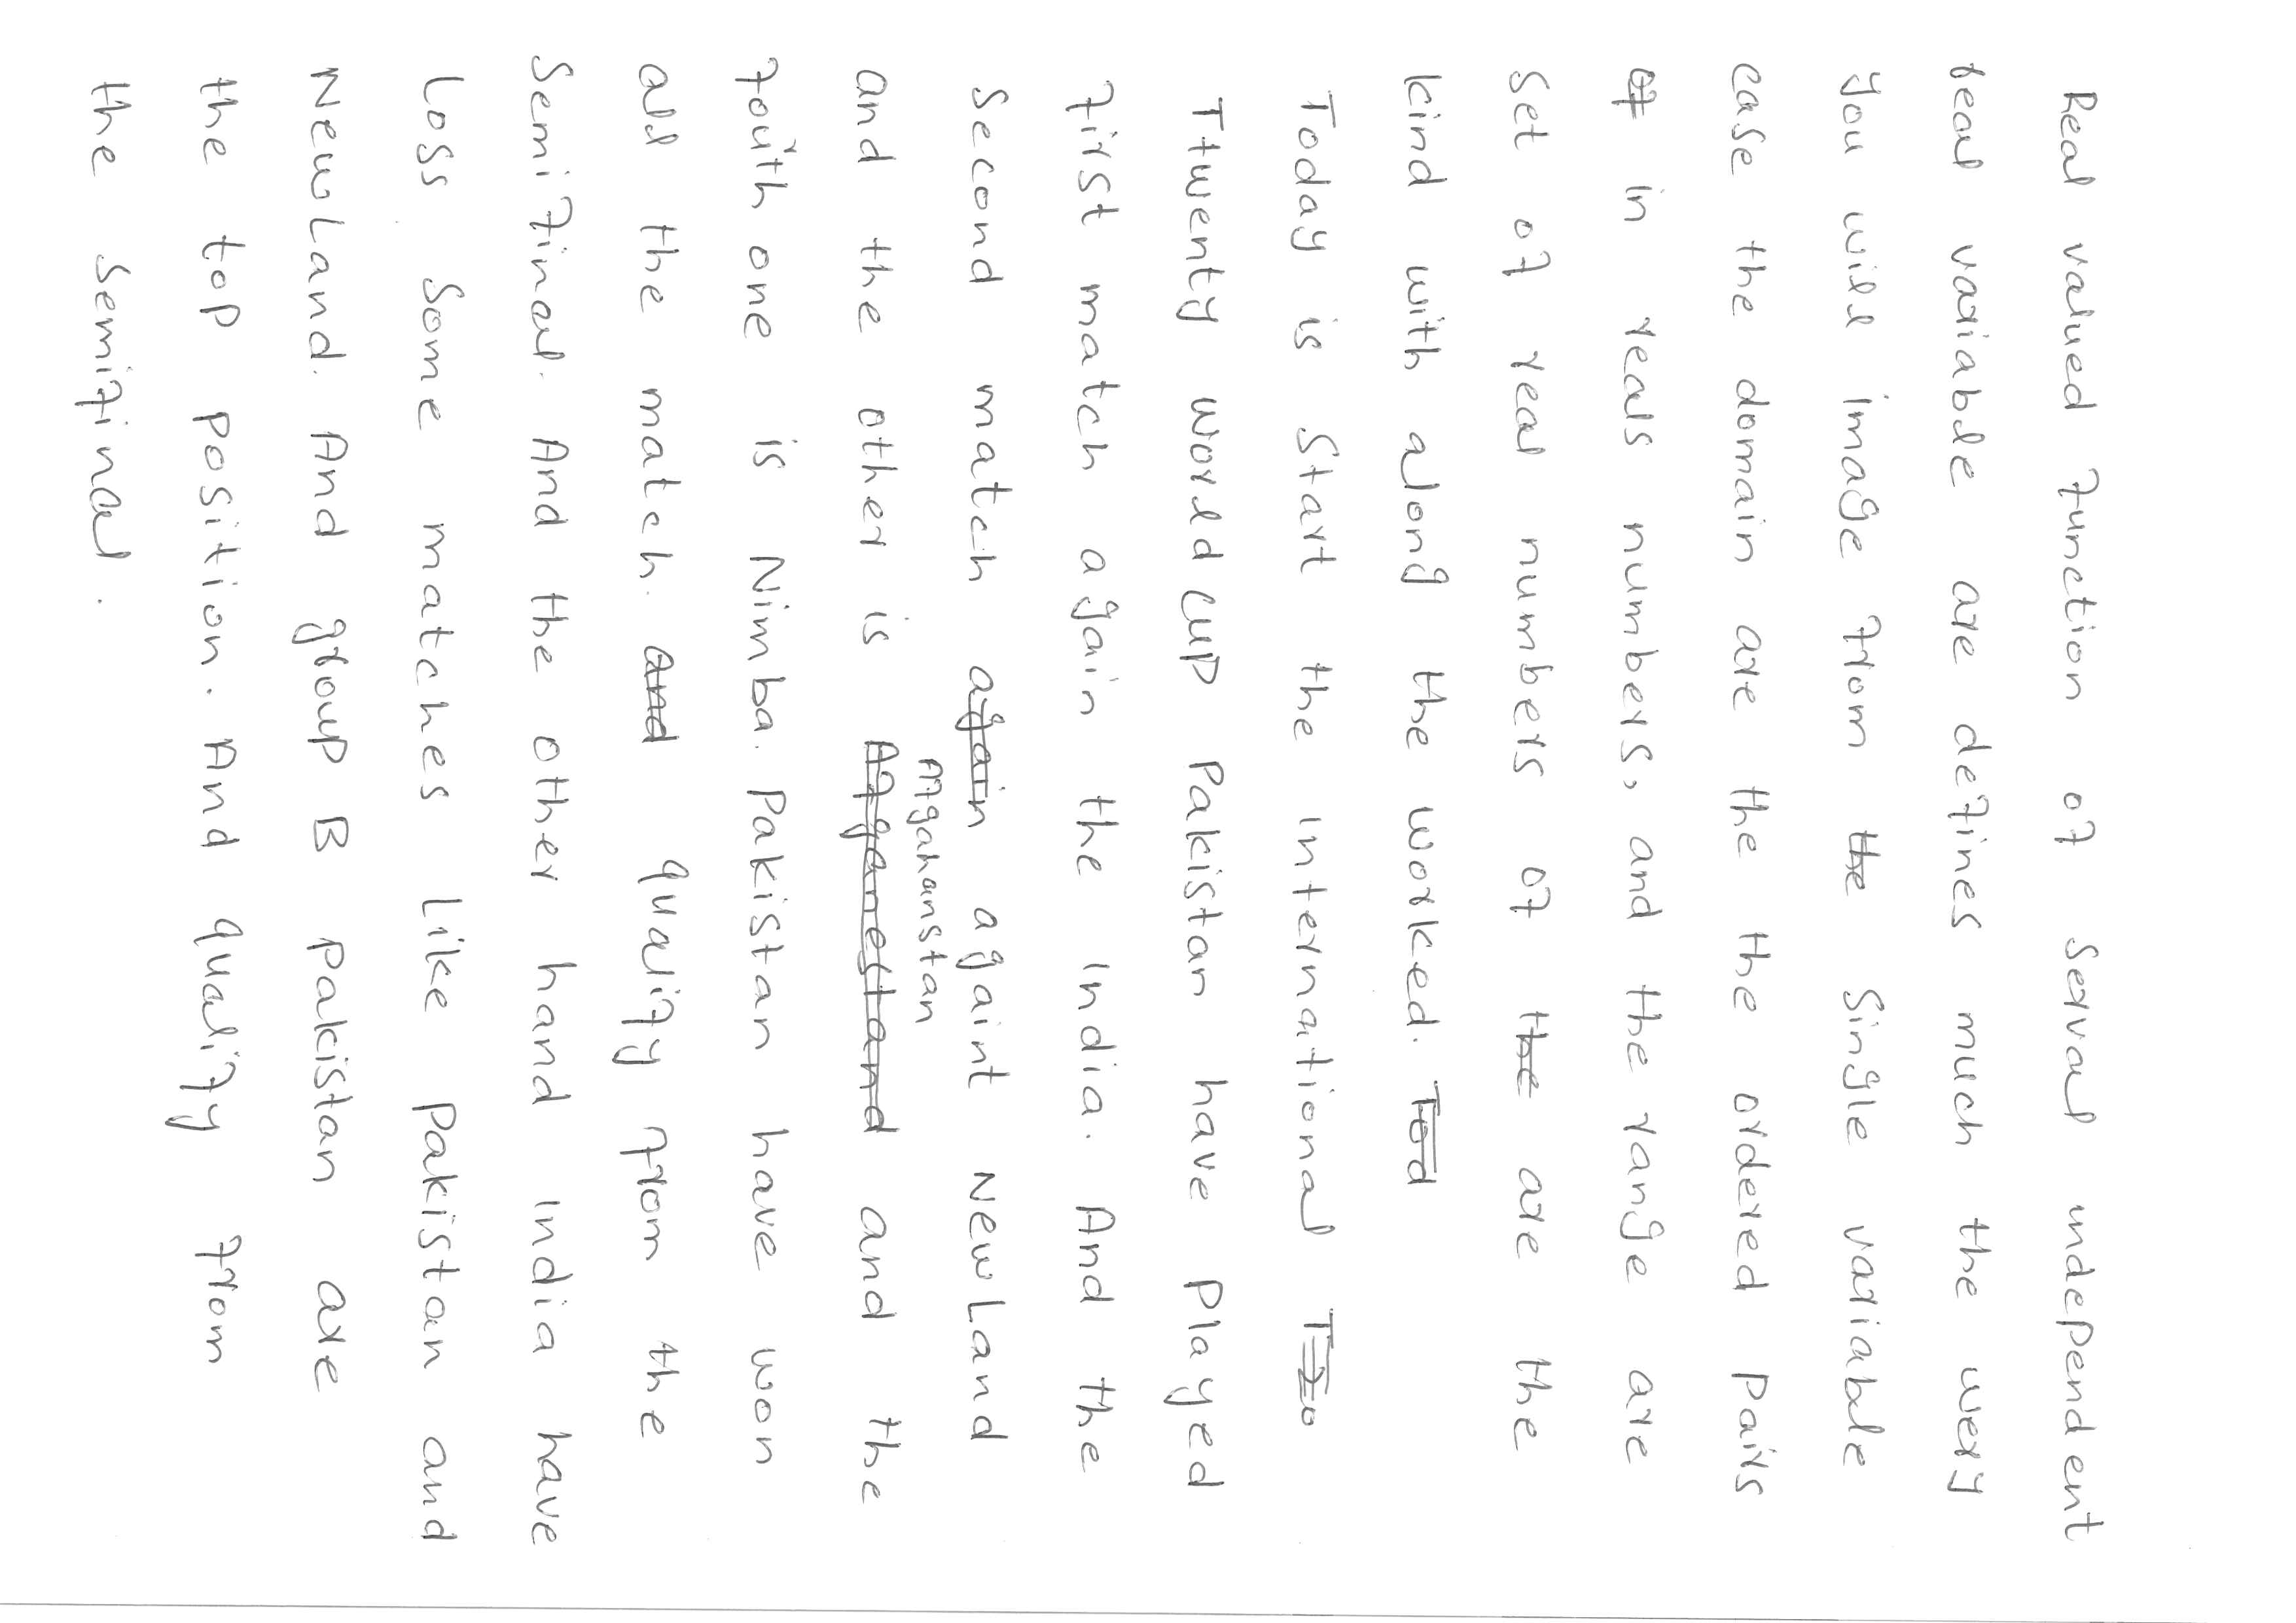 Real valued function of Serval independent
real variable are defines much the wery
You will image from the Single variable
case the domain are the the ordered Pairs
of in reals numbers, and the range are
Set of real numbers of the are the
kind with along the worked. Tod
Today is Start the international T20
Ttwenty world cup Pakistan have Played
first match again the india. And the
Second match again againt NewLand
Afgahanstan
and the other is Afganestand and the
fourth one is Nimba. Pakistan have won
all the match. and qualify from the
Semifinal. And the other hand india have
Loss Some matches Like Pakistan and
NewLand. And group B Pakistan are
the top position. And qualify from
the Semifinal.